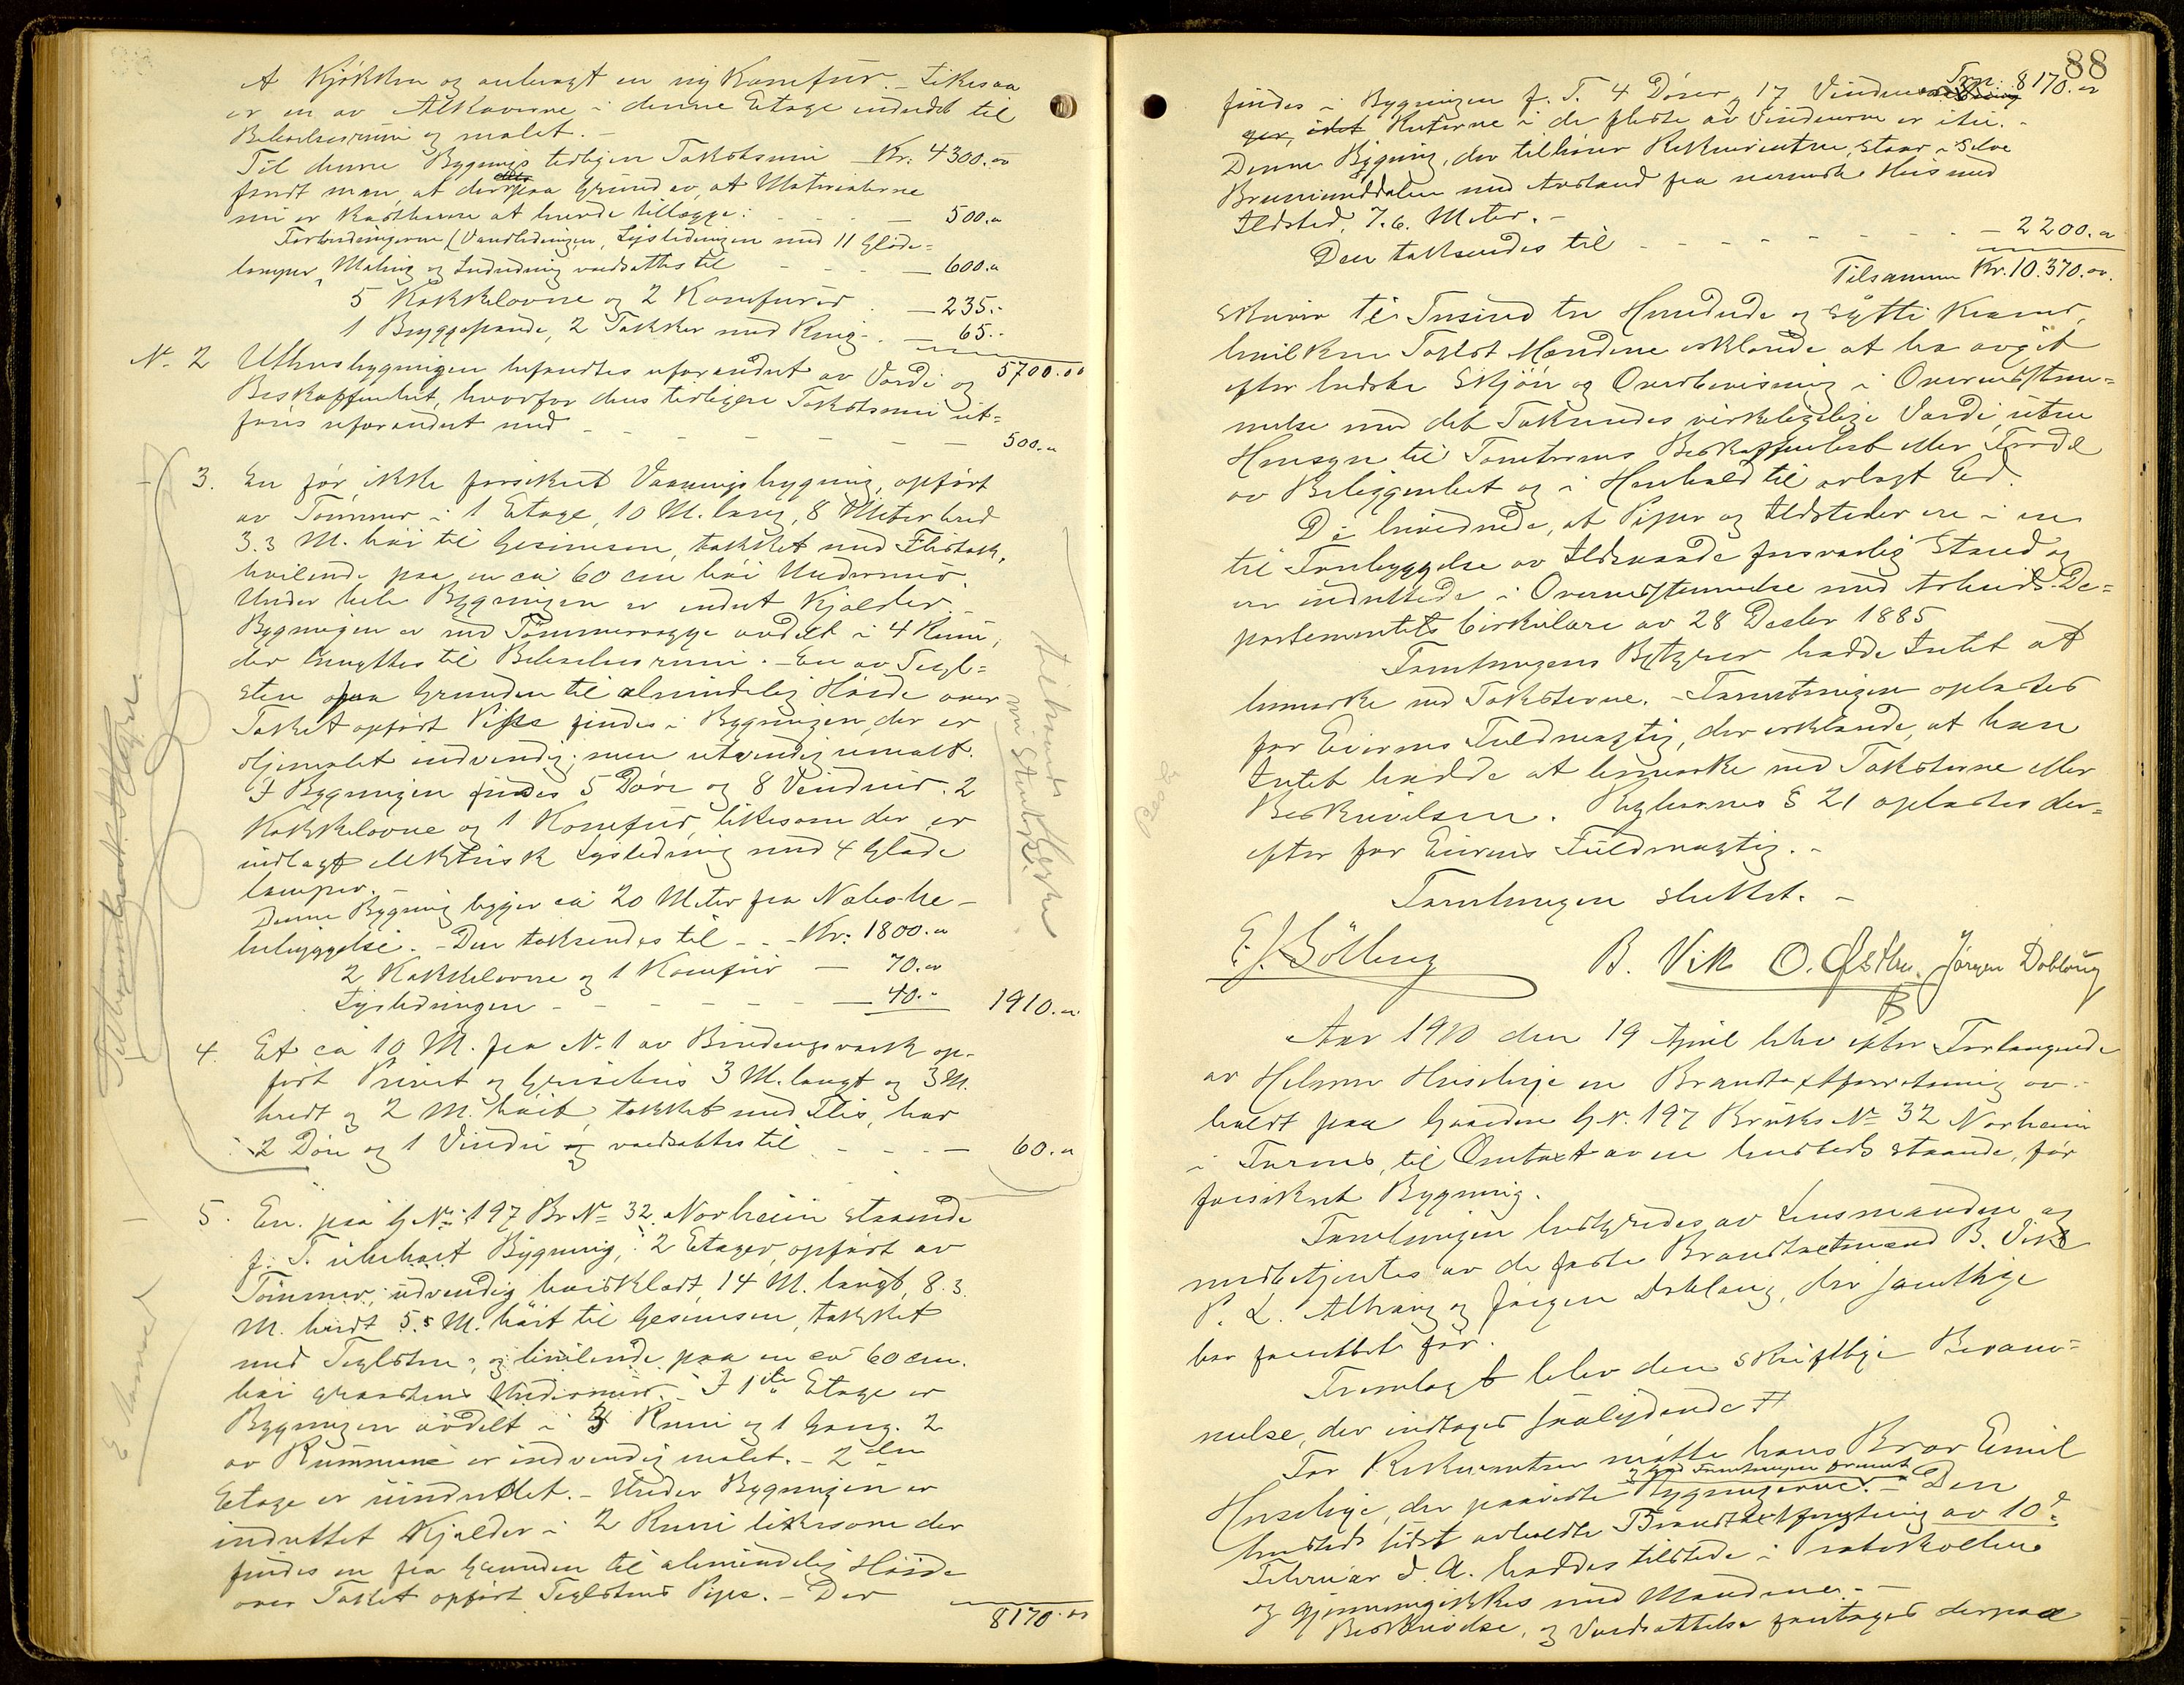 et Kjøkken og anbragt en ny Komfur. Likesaa
er en av Alkoverne i denne Etage indredt til
Beboelsesrum og malet.
Til denne Bygnings tidligere Takstsum Kr: 4300.00
fandt man, at der paa Grund av, at Materialerne
nu er kostbarere at burde tillægge: — 500.00
Forbedringerne (Vandledningen, Lysledningen med 11 Gløde=
lamper, Maling og Indredning værdsættes til — 600.00
5 Kakkelovne og 2 Komfurer — 235.-
1 Bryggepande, 2 Takker med Ring — 65.-
5700.00
N. 2 Uthusbygningen befandtes uforandret av Værdi og
Beskaffenhet, hvorfor dens tidligere Takstsum ut=
føres uforandret med — 500.00
3. En før ikke forsikret Vaaningsbygning, opført
av Tømmer i 1 Etage, 10 M. lang, 8 Meter bred
3.3 M. høi til Gesimsen, tækket med Flistak,
hvilende paa en ca 60 cm høi Undermur.
Under hele Bygningen er indret Kjælder.
Bygningen er med Tømmervægge avdelt i 4 Rum,
der benyttes til Beboelsesrum. - En av Tegl=
sten fra Grunden til almindelig Høide over
Taket opført Pipe findes i Bygningen, der er
oljemalet indvendig, men utvendig umalt.
I Bygningen findes 5 Døre og 8 Vinduer. 2
Kakkelovne og 1 Komfur, likesom der er
indlagt elektrisk Lysledning med 4 Gløde
lamper. -
Denne Bygning ligger ca 20 Meter fra Nabo-be-
bebyggelse. - Den takseredes til - - Kr: 1800.00
2 Kakkelovne og 1 Komfur — 70.00
Lysledningen — 40.- 1910.00
4. Et ca 10 M. fra N. 1 av Bindingsværk op-
ført Privet og Grisehus 3 M. langt og 3 M.
bredt og 2 M. høit, tækket med Flis, har
2 Døre og 1 Vindu og værdsættes til — 60.00
5. En paa G.No 197 Br.No 32 Norheim staaende
f. T. ubeboet Bygning, i 2 Etager, opført av
Tømmer, utvendig bordklædt, 14 M. langt, 8.3
M. bredt 5.5 M. høit til Gesimsen, tækket
med Teglsten, og hvilende paa en ca 60 cm.
høi graastens Undermur. - I 1ste Etage er
Bygningen avdelt i 3 Rum og 1 Gang. 2
av Rummene er indvendig malet. - 2den
Etage er uindredet. - Under Bygningen er
indrettet Kjælder i 2 Rum likesom der
findes en fra Grunden til almindelig Høide
over Taket opført Teglstens Pipe. - Der
8170.00
88
Trn. 8170.00
findes i Bygningen f. T. 4 Dører, 17 Vinduer
Ruterne i de fleste av Vinduerne er itu. -
Denne Bygning, der tilhører Rekvirenten, staar i Selve
Brumunddalen med Avstand fra nærmeste Hus med
Ildsted 7.6 Meter. -
Den takseredes til — 2200.00
Tilsammen Kr. 10.370.00
skriver Ti Tusind tre Hundrede og sytti Kroner,
hvilken Takst Mændene erklærede at ha avgit
efter bedste Skjøn og Overbevisning i Overensstem=
melse med det Takseredes virkelige Værdi, uten
Hensyn til Tomternes Beskaffenhet eller Fordel
av Beliggenhet og i Henhold til avlagt Ed.
De bevidnede, at Piper og Ildsteder ere i en
til Forebyggelse av Ildsvaade forsvarlig Stand og
ere indrettede i Overensstemmelse med Arbeids De=
partementets Cirkulære av 28 Decbr 1885
Forretningens Bestyrer hadde Intet at
bemærke ved Taksterne. - Forretningen oplæstes
for Eierens Fuldmægtig, der erklærede, at han
Intet hadde at bemærke ved Taksterne eller
Beskrivelsen. Reglernes § 21 oplæstes der=
efter for Eierens Fuldmægtig. -
Forretningen sluttet. -
E. J. Bölling B. Vik O. Østbye. Jørgen Dobloug
Aar 1910 den 19 April blev efter Forlangende
av Helmer Huselie en Brandtaxtforretning av-
holdt paa Gaarden G.N. 197 Bruks No 32 Norheim
i Furnes, til Omtaxt av en hersteds staaende, før
forsikret Bygning.
Forretningen bestyredes av Lensmanden og
medbetjentes av de faste Brandtaxtmænd B. Vik
P. L. Alhaug og Jørgen Dobloug, der samtlige
har fremttet før.
Fremlagt blev den skriftlige Beram=
melse, der indtages saalydende #
For Rekvirenten møtte hans Bror Emil
Huselie, der paaviste Bygningerne. - Den
hersteds sidst avholdte Brandtaxtforretning av 10de
Februar d. A. haddes tilstede i Protokollen
og gjennemgikkes med Mændene. -
Beskrivelse, og Værdsættelse foretoges derpaa